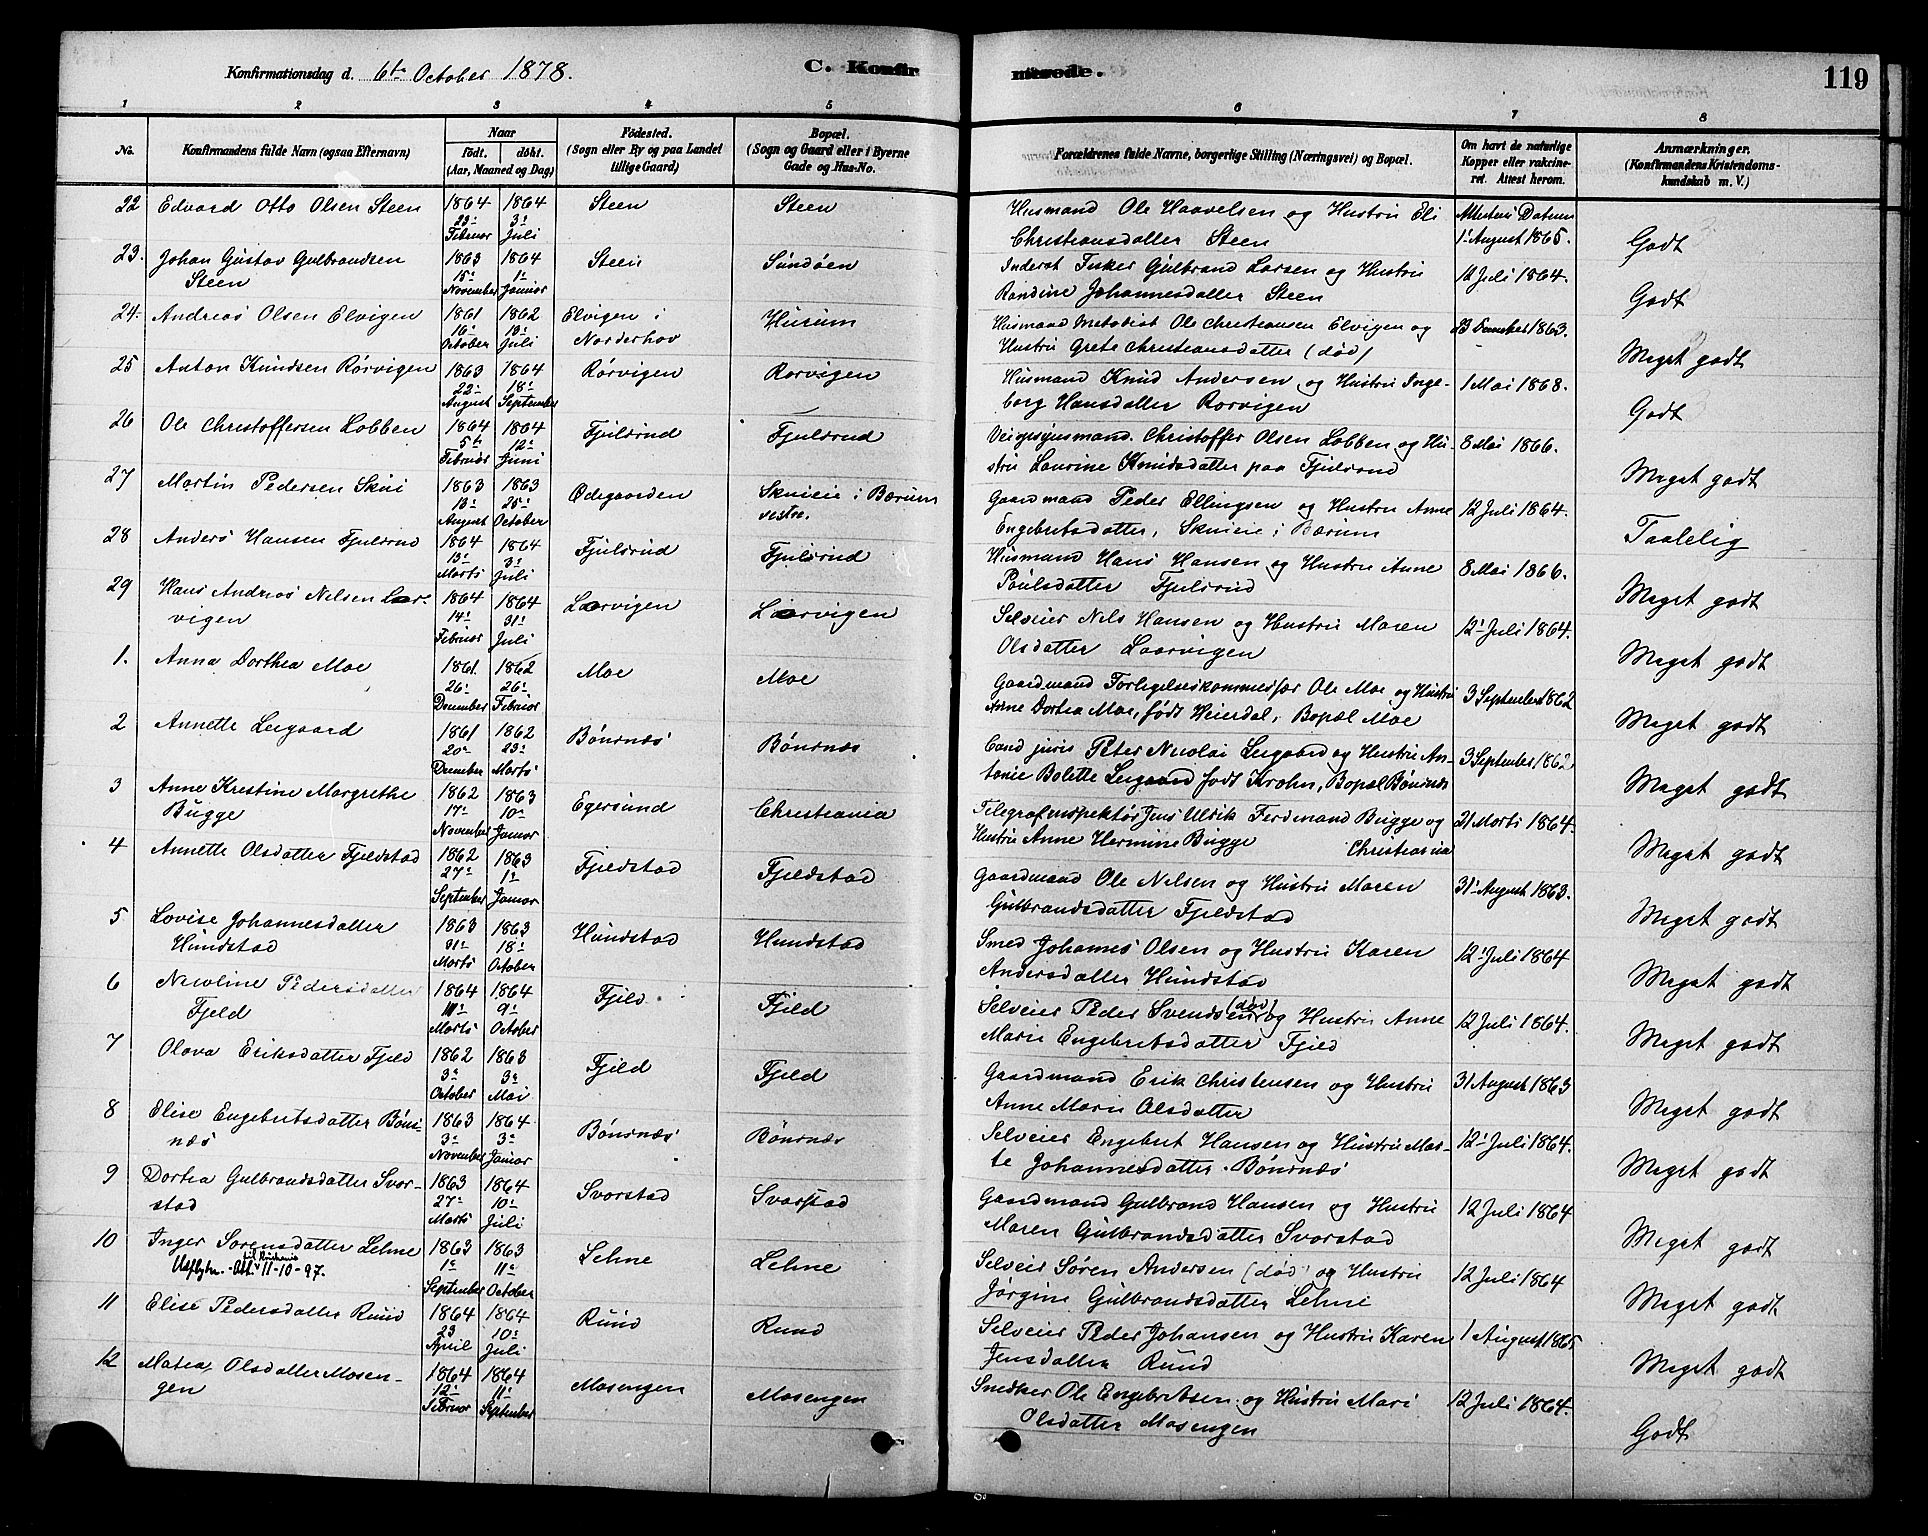 Konfirmationsdag d. 6te October 1878.
C. Konfirmerede.
119
1 2 3 4 5 6 7 8
No.
Konfirmandens fulde Navn (ogsaa Efternavn)
Naar
födt. döbt.
(Aar, Maaned og Dag)
Födested.
(Sogn eller By og paa Landet
tillige Gaard)
Bopæl.
(Sogn og Gaard eller i Byerne
Gade og Hus-No.
Forældrenes fulde Navne, borgerlige Stilling (Næringsvei) og Bopæl.
Om havt de naturlige
Kopper eller vakcine-
ret. Attest herom.
Anmærkninger.
(Konfirmandens Kristendoms-
kundskab m. V.)
22 Edvard Otto Olsen Steen 1864 22 Februar 1864 3 Juli Steen Steen Husmand Ole Haavelsen og Hustru Eli
Christiansdatter Steen Attestens Datum 1 August 1865. Godt
23. Johan Gustav Gulbrandsen
Steen 1863 15 November 1864 1 Januar Steen Sundöen Inderst Fisker Gulbrand Larsen og Hustru
Randine Johannesdatter Steen 12 Juli 1864. Godt
24. Andreas Olsen Elvigen 1861 16 October 1862 13 Juli Elvigen i
Norderhov Hurum Husmand Metodist Ole Christiansen Elvigen og
Hustru Grete Christiansdatter (död) 23 December 1863. Meget godt
25 Anton Knudsen Rörvigen 1863 22 August 1864 18 September Rörvigen Rörvigen Husmand Knud Andersen og Hustru Inge-
borg Hansdatter Rörvigen 1 Mai 1868. Godt
26 Ole Christoffersen Lobben 1864 5te Februar 1864 12 Juni Fjulsrud Fjulsrud Christoffer Olsen Lobben og Hu-
stru Laurine Knudsdatter paa Fjulsrud 8 Mai 1866. Meget godt
27 Martin Pedersen Skui 1863 13 August 1863 25 October Ödegaarden Skuieie i Bærum
vestre. Gaardmand Peder Ellingsen og Hustru Anne
Engebretsdatter, Skuieie i Bærum 12 Juli 1864. Taalelig
28 Anders Hansen Fjulsrud 1864 13 Marts 1864 3 Juli Fjulsrud Fjulsrud Husmand Hans Hansen og Hustru Anne
Poulsdatter Fjulsrud 8 Mai 1866. Meget godt
29 Hans Andreas Nilsen Laar-
vigen 1864 14 Februar 1864 31 Juli Laarvigen Laarvigen Selveier Nils Hansen og Hustru Maren
Olsdatter Laarvigen 12 Juli 1864. Meget godt
1. Anna Dorthea Moe 1861 26 December 1862 26 Februar Moe Moe Gaardmand Forligelseskommissær Ole Moe og Hustru
Anne Dortea Moe, födt Heierdal, Bopæl Moe 3 September 1862 Meget godt
2 Annette Leegaard 1861 20 December 1862 23 Marts Bönsnæs Bönsnæs Cand juris Peter Nicolai Leegaard og Hustru An-
tonie Bolette Leegaard födt Krohn, Bopæl Bönsnæs 3 September 1862 Meget godt
3 Anne Kristine Margrethe
Bugge 1862 17 November 1863 10 Januar Egersund Christiania Telegrafinspektör Jens Ulrik Ferdinand Bugge og
Hustru Anne Hermine Bugge Christiania 21 Marts 1864. Meget godt
4 Annette Olsdatter Fjeldstad 1862 27 September 1863 1 Januar Fjeldstad Fjeldstad Gaardmand Ole Nilsen og Hustru Maren
Gulbrandsdatter Fjeldstad 31 August 1863. Meget godt
5 Lovise Johannesdatter
Hundstad 1863 31 Marts 1863 18 October Hundstad Hundstad Smed Johannes Olsen og Hustru Karen
Andersdatter Hundstad 12 Juli 1864 Meget godt
6 Nicoline Pedersdatter
Fjeld 1864 Marts 1864 9 October Fjeld Fjeld Selveier Peder Svendsen (död) og Hustru Anne
Marie Engebretsdatter Fjeld 12 Juli 1864. Meget godt
7 Olava Eriksdatter Fjeld 1862 3 October 1863 3 Mai Fjeld Fjeld Gaardmand Erik Christensen og Hustru
Anne Marie Olsdatter 31 August 1863 Meget godt
8 Elise Engebretsdatter Böns-
næs 1863 3 November 1864 3 Januar Bönsnæs Bönsnæs Selveier Engebret Hansen og Hustru Mar-
te Johannesdatter Bönsnæs 12 Juli 1864. Meget godt
9 Dortea Gulbrandsdatter Svar-
stad 1863 27 Marts 1864 10 Juli Svarstad Svarstad Gaardmand Gulbrand Hansen og Hustru
Maren Gulbrandsdatter Svarstad 12 Juli 1864 Meget godt
10 Inger Sörensdatter Lehne
Udflytn. Att. 11-10-97. 1863 1 September 1863 11 October Lehne Lehne Selveier Sören Andersen (död) og Hustru
Jörgine Gulbrandsdatter Lehne 12 Juli 1864 Meget godt
11 Elise Pedersdatter Ruud 1864 23 April 1864 10 Juli Ruud Ruud Selveier Peder Johansen og Hustru Karen
Jensdatter Ruud 1 August 1865 Meget godt
12 Matea Olsdatter Mosen-
gen 1864 12 Februar 1864 11 September Mosengen Mosengen Snedker Ole Engebretsen og Hustru Mari
Olsdatter Mosengen 12 Juli 1864. Godt